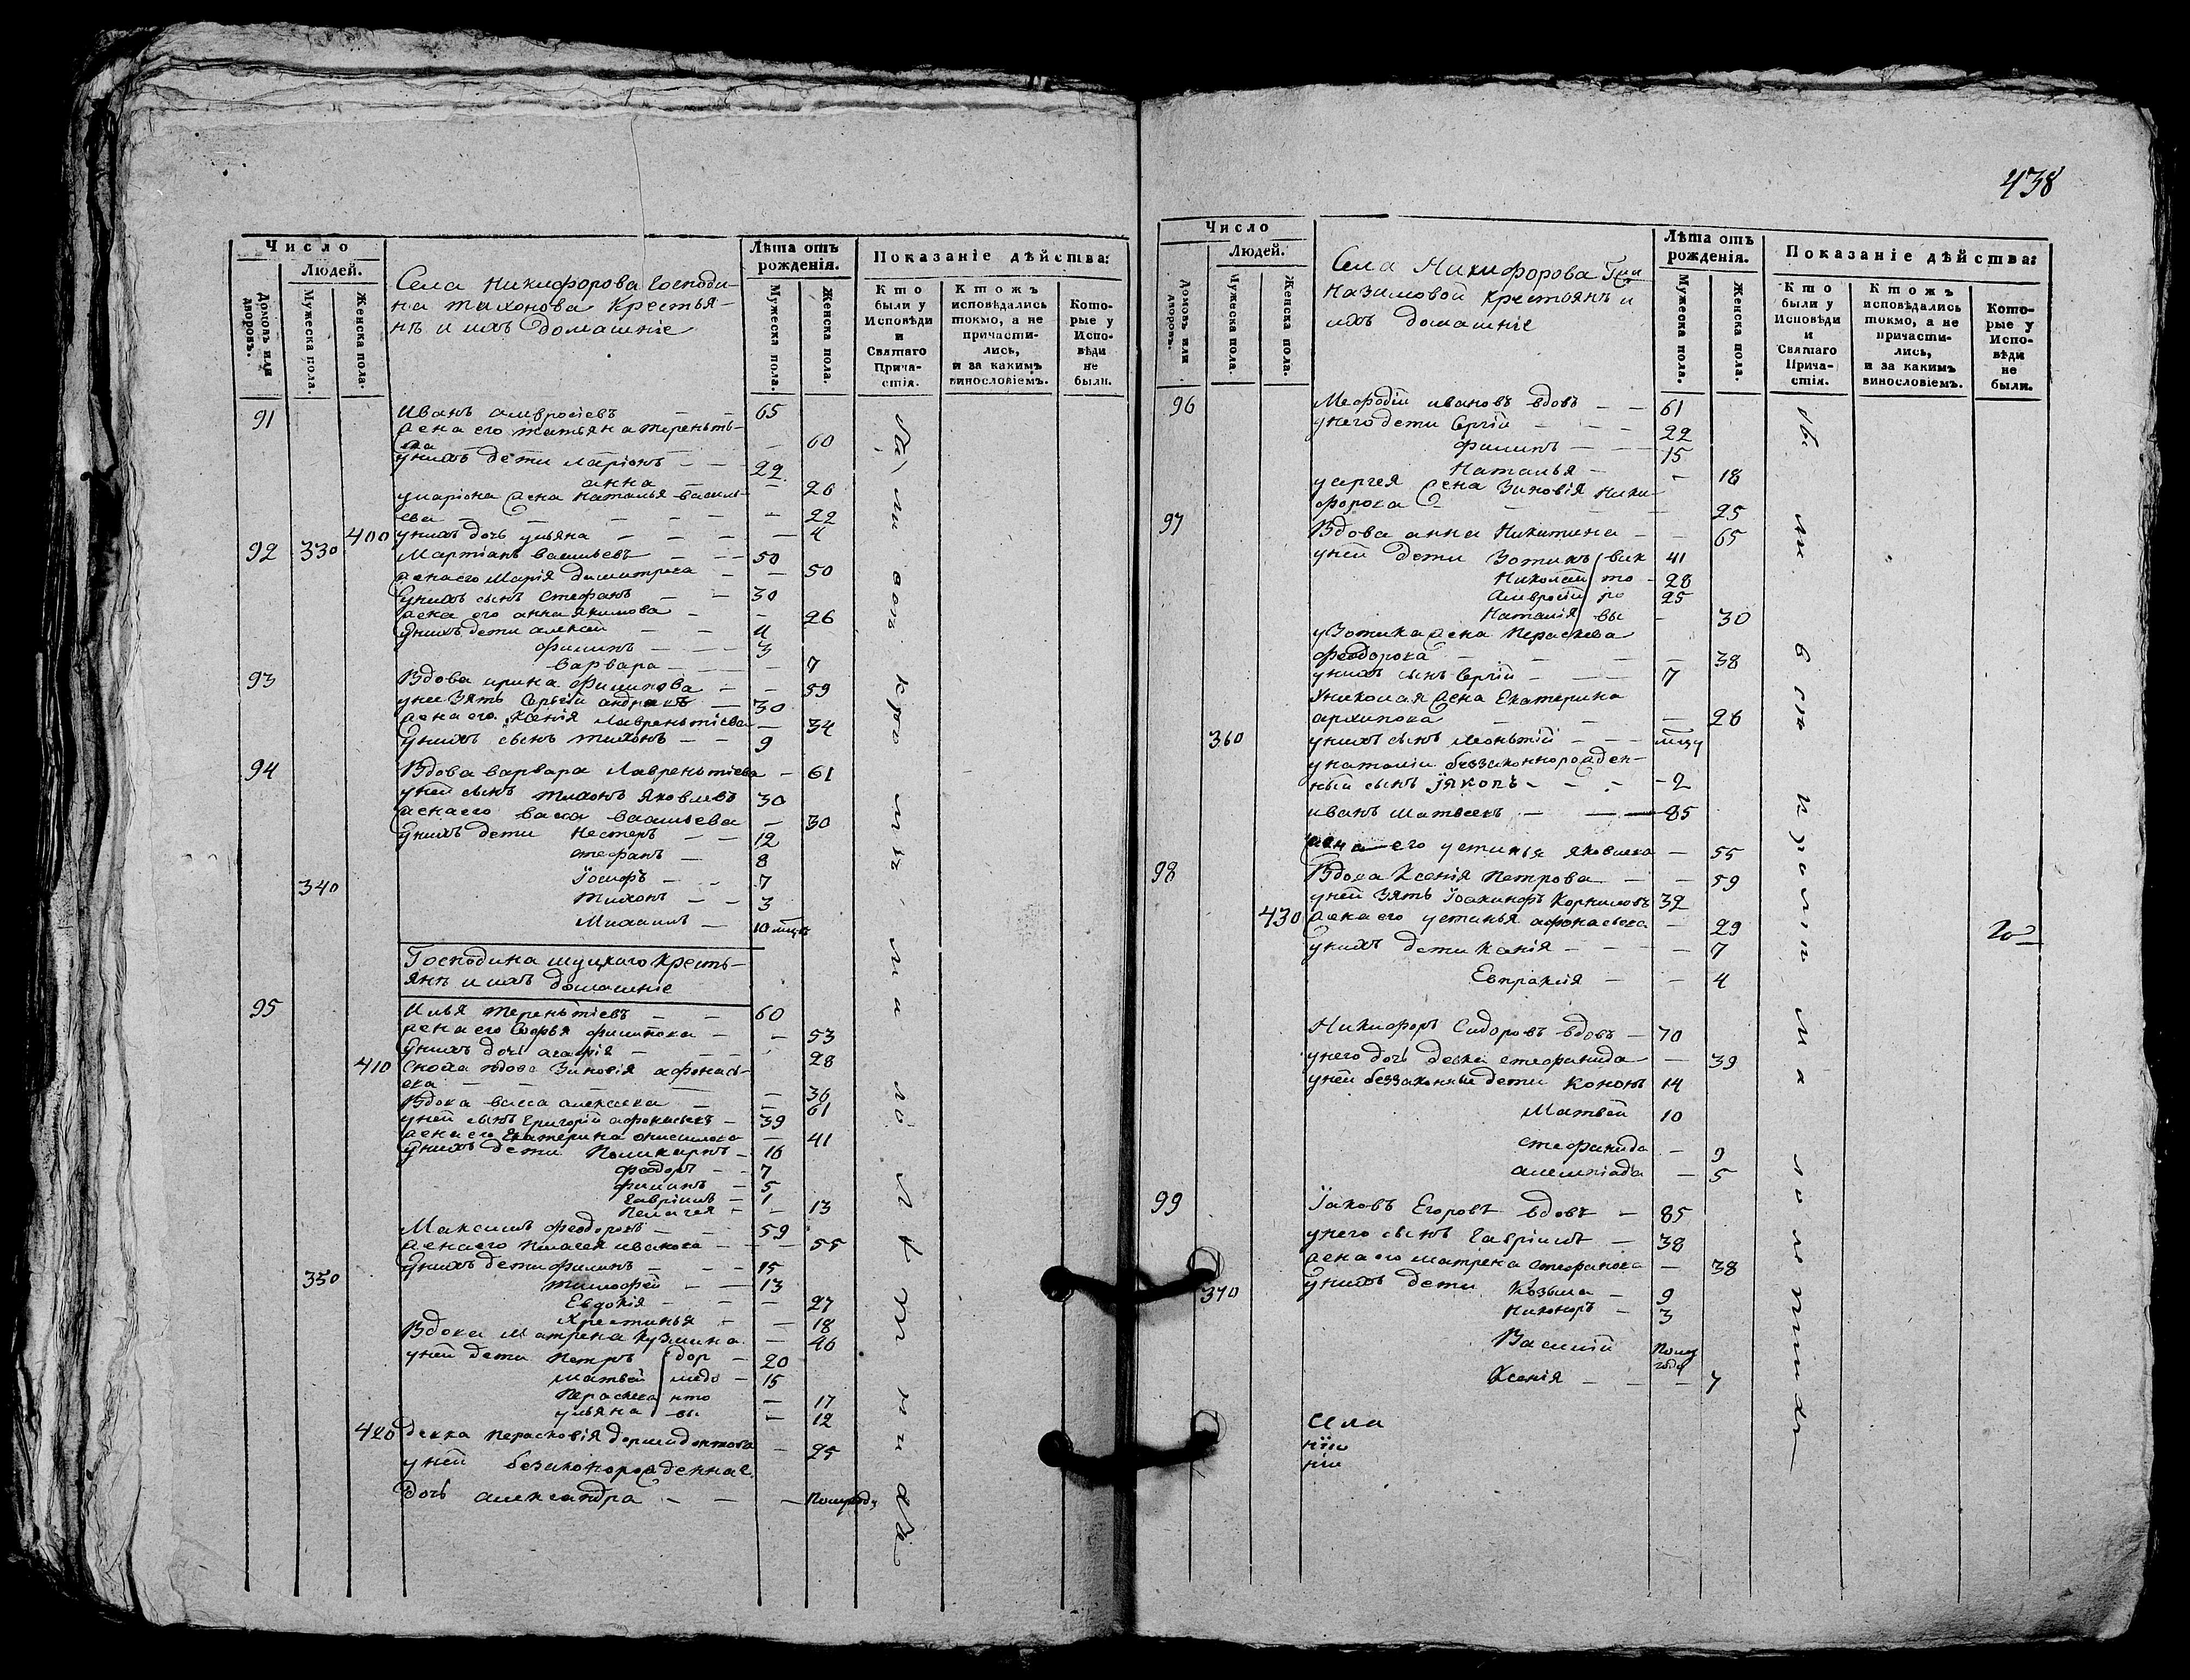 438
Число
Людей.
Домовъ или дворовъ.
Мужеска пола.
Женска пола.
Села Никифорова Господи-
на Тихонова крестья-
нъ и ихъ домашніе
Лѣта отъ рожденія.
Мужеска пола.
Женска пола.
Показаніе дѣйства:
Кто были у Исповѣди и Святаго Прича-стія.
Ктожъ исповѣдались токмо, а не причасти-лись, и за какимъ винословіемъ.
Кото-рые у Испо-вѣди не были.
91 Иванъ амвросіевъ — — 65
жена его татьяна терентть-
ева — 60
унихъ дети ларіонъ — — 22
анна — — 26
уларіона жена наталья василь-
ева — — — — — 22
400 унихъ дочь ульяна — — — — 4
92 330 Мартіанъ васильевъ — — — 50
жена его Марія димитрева — — 50
Унихъ сынъ Стефанъ — — 30
жена его анна якимова — — 26
Унихъ дети алексей — — 4
филипъ — — — 3
варвара — — — 7
93 Вдова ирина филипова — — 59
унее зять Сергій андреевъ — 30
жена его Ксенія лаврентьтіева — 34
Унихъ сынъ тихонъ — — 9
94 Вдова варвара лаврентьтіева — 61
уней сынъ тихонъ яковлевъ 30
жена его васса васильева — 30
Унихъ дети нестеръ — — 12
стефанъ — 8
340 Іосифъ — — 7
тихонъ — — 3
Михаилъ — 10 мцъ
Господина шуцкаго кресть-
янъ и ихъ домашніе
95 Илья терентьтіевъ — — 60
жена его Софья филипова — — 53
Унихъ дочь агафія — — — 28
410 Сноха вдова Зиновія афонась-
ева — — — — — 36
Вдова васса алексеева — — 61
уней сынъ григорій афонасьевъ — 39
жена его Екатерина онисимова — 41
Унихъ дети Поликарпъ — 16
феодоръ — — 7
филипъ — 5
гавріилъ — 1
пелагея — — 13
Максимъ феодоровъ — — 59
жена его пелагея иванова — — — 55
Унихъ дети филипъ — — — 15
350 тимофей — — 13
Евдокія — — — 27
Христинья — — 18
Вдова Матрена кузмина — 46
уней дети петръ дор — 20
матвей медо — 15
параскева нто — 17
ульяна вы — 12
420 девка парасковія дормидонтова — 25
уней безаконорожденная
дочь александра — — — Полугоду
Число
Людей.
Домовъ или дворовъ.
Мужеска пола.
Женска пола.
Села Никифорова Гжи
Назимовой крестьянъ и
ихъ домашніе
Лѣта отъ рожденія.
Мужеска пола.
Женска пола.
Показаніе дѣйства:
Кто были у Исповѣди и Святаго Прича-стія.
Ктожъ исповѣдались токмо, а не причасти-лись, и за какимъ винословіемъ.
Кото-рые у Испо-вѣди не были.
96 Мефодій ивановъ вдовъ — — 61
унего дети Сергій — — — 22
филипъ — — 15
Наталья — — 18
усергея жена Зиновія Ники-
форова — — — 25
97 Вдова анна Никитина — — 65
уней дети Зотикъ вик 41
Николай то — 28
амвросій ро 25
Наталія вы — 30
уЗотика жена параскева
феодорова — — — — 38
унихъ сынъ Сергій — — — 7
Униколая жена Екатерина
архипова — — — 26
360 унихъ сынъ леонтьтій — — — мцу
унаталіи беззаконнорожден-
ный сынъ Іяковъ — — — 2
иванъ матвеевъ — — — 85
жена его устинья яковлева — 55
98 Вдова Ксенія Петрова — — 59
уней зять Іоакинфъ Корниловъ 32
430 жена его устинья афонасьева — 29
Унихъ дети Ксенія — — — 7
Евпраксія — — 4
Никифоръ Сидоровъ вдовъ — 70
унего дочь девка стефанида — — 39
уней беззаконные дети кононъ 14
Матвей 10
стефанида — 9
алимпіада — 5
99 Іаковъ Егоровъ вдовъ — 85
унего сынъ гавріилъ — 38
жена его матрена стефанова — 38
370 Унихъ дети Козьма — 9
Никоноръ — 3
Василій Полугоду
Ксенія — — — 7
Села